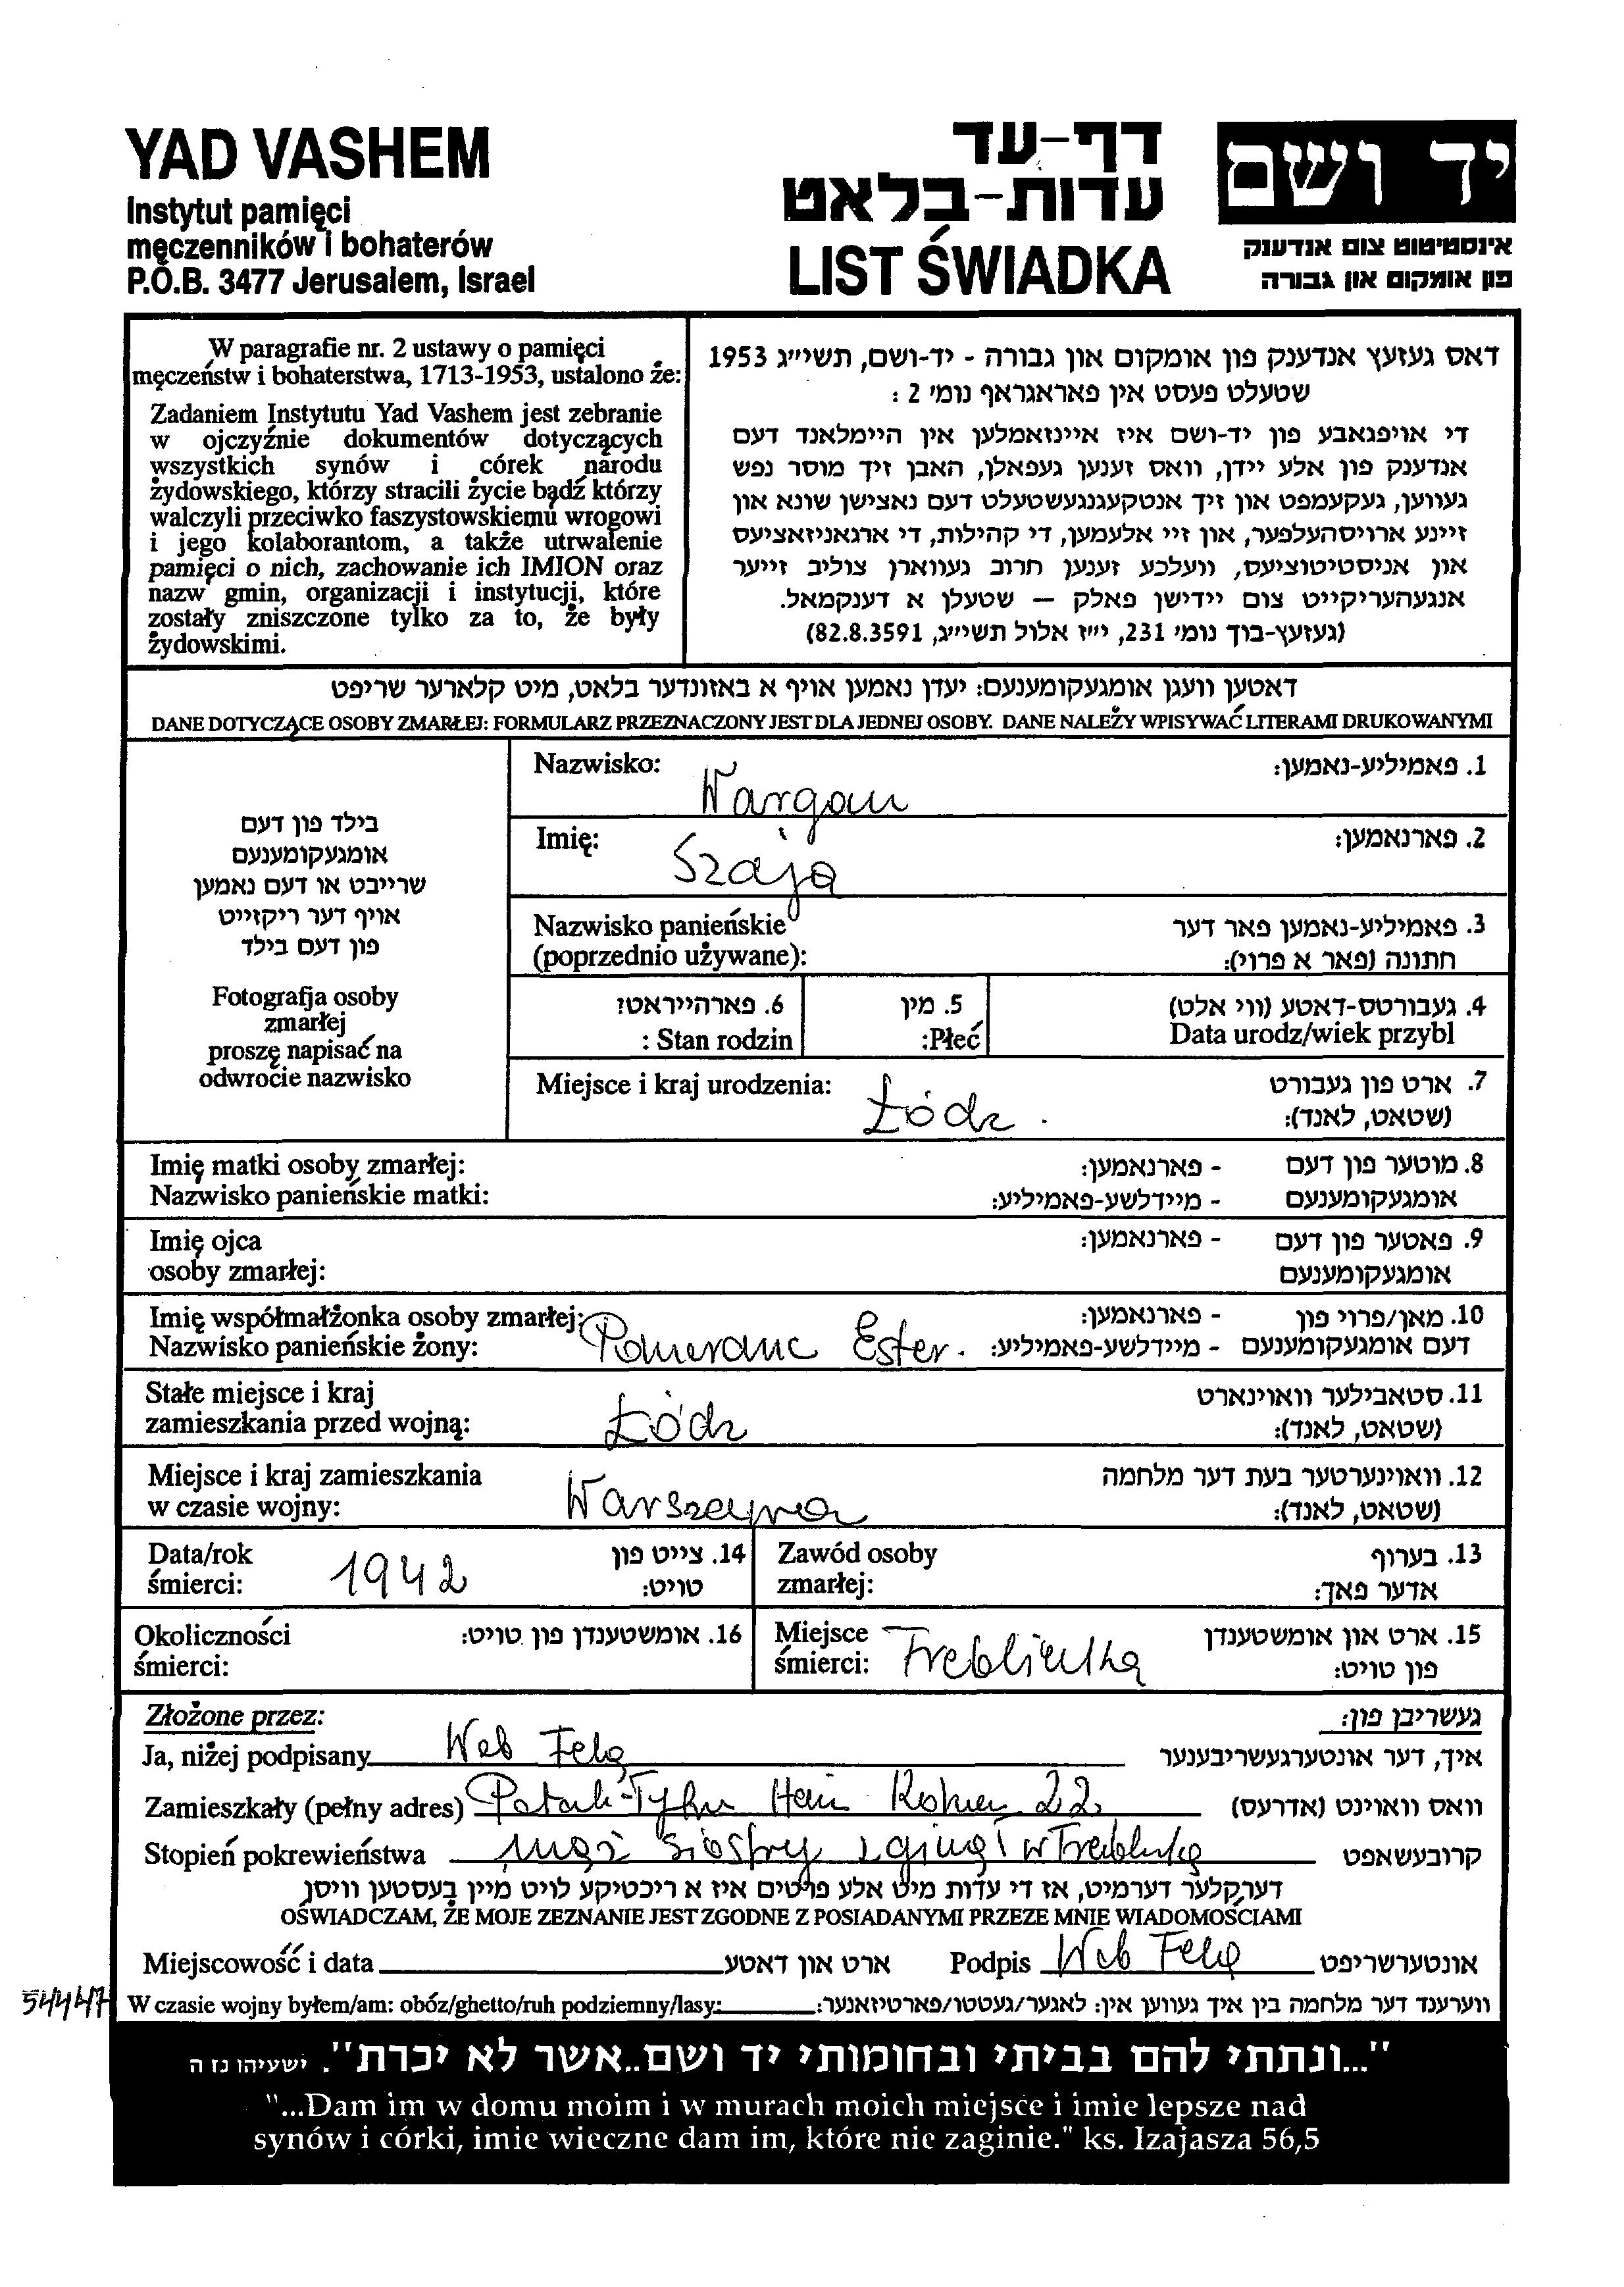 YAD VASHEM
Instytut pamięci
męczenników i bohaterów
P.O.B. 3477 Jerusalem, Israel
דף-עד
עדות-בלאט
LIST ŚWIADKA
יד ושם
אינסטיטוט צום אנדענק
פון אומקום און גבורה
W paragrafie nr. 2 ustawy o pamięci
męczeństw i bohaterstwa, 1713-1953, ustalono że:
Zadaniem Instytutu Yad Vashem jest zebranie
w ojczyźnie dokumentów dotyczących
wszystkich synów i córek narodu
żydowskiego, którzy stracili życie bądź którzy
walczyli przeciwko faszystowskiemu wrogowi
i jego kolaborantom, a także utrwalenie
pamięci o nich, zachowanie ich IMION oraz
nazw gmin, organizacji i instytucji, które
zostały zniszczone tylko za to, że były
żydowskimi.
דאס געזעץ אנדענק פון אומקום און גבורה - יד-ושם, תשי״ג 1953
שטעלט פעסט אין פאראגראף נומ׳ 2 :
די אויפגאבע פון יד-ושם איז איינזאמלען אין היימלאנד דעם
אנדענק פון אלע יידן, וואס זענען געפאלן, האבן זיך מוסר נפש
געווען, געקעמפט און זיך אנטקעגנגעשטעלט דעם נאצישן שונא און
זיינע ארויסהעלפער, און זיי אלעמען, די קהילות, די ארגאניזאציעס
און אניסטיטוציעס, וועלכע זענען חרוב געווארן צוליב זייער
אנגעהעריקייט צום יידישן פאלק – שטעלן א דענקמאל.
(געזעץ-בוך נומ׳ 231, י״ז אלול תשי״ג, 82.8.3591)
דאטען וועגן אומגעקומענעם: יעדן נאמען אויף א באזונדער בלאט, מיט קלארער שריפט
DANE DOTYCZĄCE OSOBY ZMARŁEJ: FORMULARZ PRZEZNACZONY JEST DLA JEDNEJ OSOBY. DANE NALEŻY WPISYWAĆ LITERAMI DRUKOWANYMI
בילד פון דעם
אומגעקומענעם
שרייבט או דעם נאמען
אויף דער ריקזייט
פון דעם בילד
Fotografja osoby
zmarłej
proszę napisać na
odwrocie nazwisko
Nazwisko: Wargon 1. פאמיליע-נאמען:
Imię: Szaja 2. פארנאמען:
Nazwisko panieńskie 3. פאמיליע-נאמען פאר דער
(poprzednio używane): חתונה (פאר א פרוי):
6. פארהייראט? 5. מין 4. געבורטס-דאטע (ווי אלט)
: Stan rodzin :Płeć Data urodz/wiek przybl
Miejsce i kraj urodzenia: Łódz. 7. ארט פון געבורט
(שטאט, לאנד):
Imię matki osoby zmarłej: - פארנאמען: 8. מוטער פון דעם
Nazwisko panieńskie matki: - מיידלשע-פאמיליע: אומגעקומענעם
Imię ojca - פארנאמען: 9. פאטער פון דעם
osoby zmarłej: אומגעקומענעם
Imię współmałżonka osoby zmarłej: - פארנאמען: 10. מאן/פרוי פון
Nazwisko panieńskie żony: Pomeranc Ester. - מיידלשע-פאמיליע: דעם אומגעקומענעם
Stałe miejsce i kraj 11. סטאבילער וואוינארט
zamieszkania przed wojną: Łódz (שטאט, לאנד):
Miejsce i kraj zamieszkania 12. וואוינערטער בעת דער מלחמה
w czasie wojny: Warszawa (שטאט, לאנד):
Data/rok 14. צייט פון Zawód osoby 13. בערוף
śmierci: 1942 טויט: zmarłej: אדער פאך:
Okoliczności 16. אומשטענדן פון טויט: Miejsce Treblinka 15. ארט און אומשטענדן
śmierci: śmierci: פון טויט:
Złożone przez: געשריבן פון:
Ja, niżej podpisany Web Fela איך, דער אונטערגעשריבענער
Zamieszkały (pełny adres) Petach-Tykw 22 וואס וואוינט (אדרעס)
Stopień pokrewieństwa mąż siostry zginął w Treblinką קרובעשאפט
דערקלער דערמיט, אז די עדות מיט אלע פרטים איז א ריכטיקע לויט מיין בעסטען וויסן
OŚWIADCZAM, ŻE MOJE ZEZNANIE JEST ZGODNE Z POSIADANYMI PRZEZE MNIE WIADOMOŚCIAMI
Miejscowość i data ארט און דאטע Podpis Web Fela אונטערשריפט
54447 W czasie wojny byłem/am: obóz/ghetto/ruh podziemny/lasy: ווערענד דער מלחמה בין איך געווען אין: לאגער/געטטו/פארטיזאנער:
"...ונתתי להם בביתי ובחומותי יד ושם..אשר לא יכרת". ישעיהו נז ה
"...Dam im w domu moim i w murach moich miejsce i imie lepsze nad
synów i córki, imie wieczne dam im, które nie zaginie." ks. Izajasza 56,5